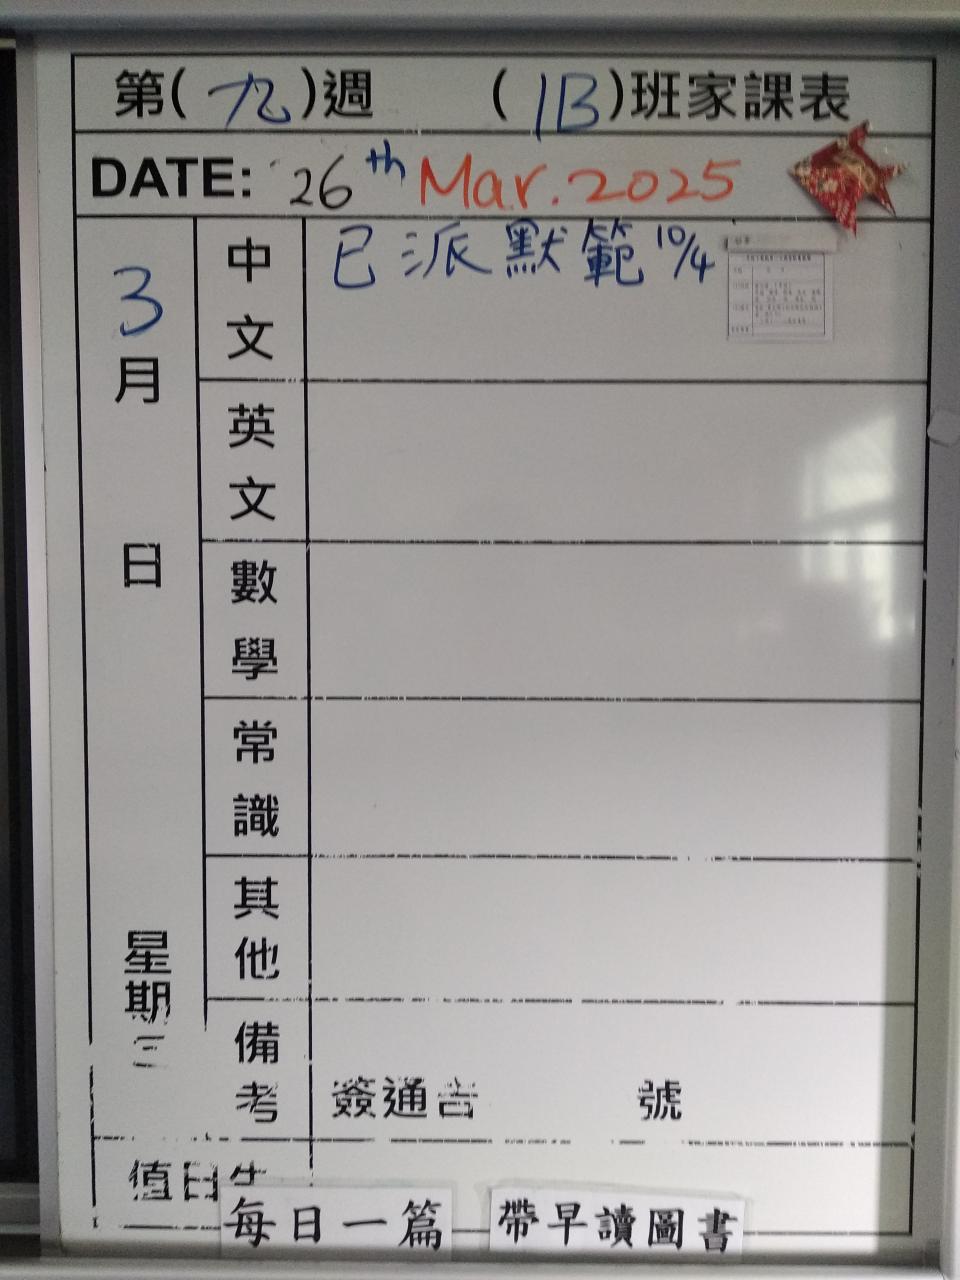 第(九)週 (1B)班家課表
DATE: 26th Mar. 2025
3月
日
星期三
中文
已派默範10/4
英文
數學
常識
其他
備考
簽通告 號
值日生
每日一篇
帶早讀圖書